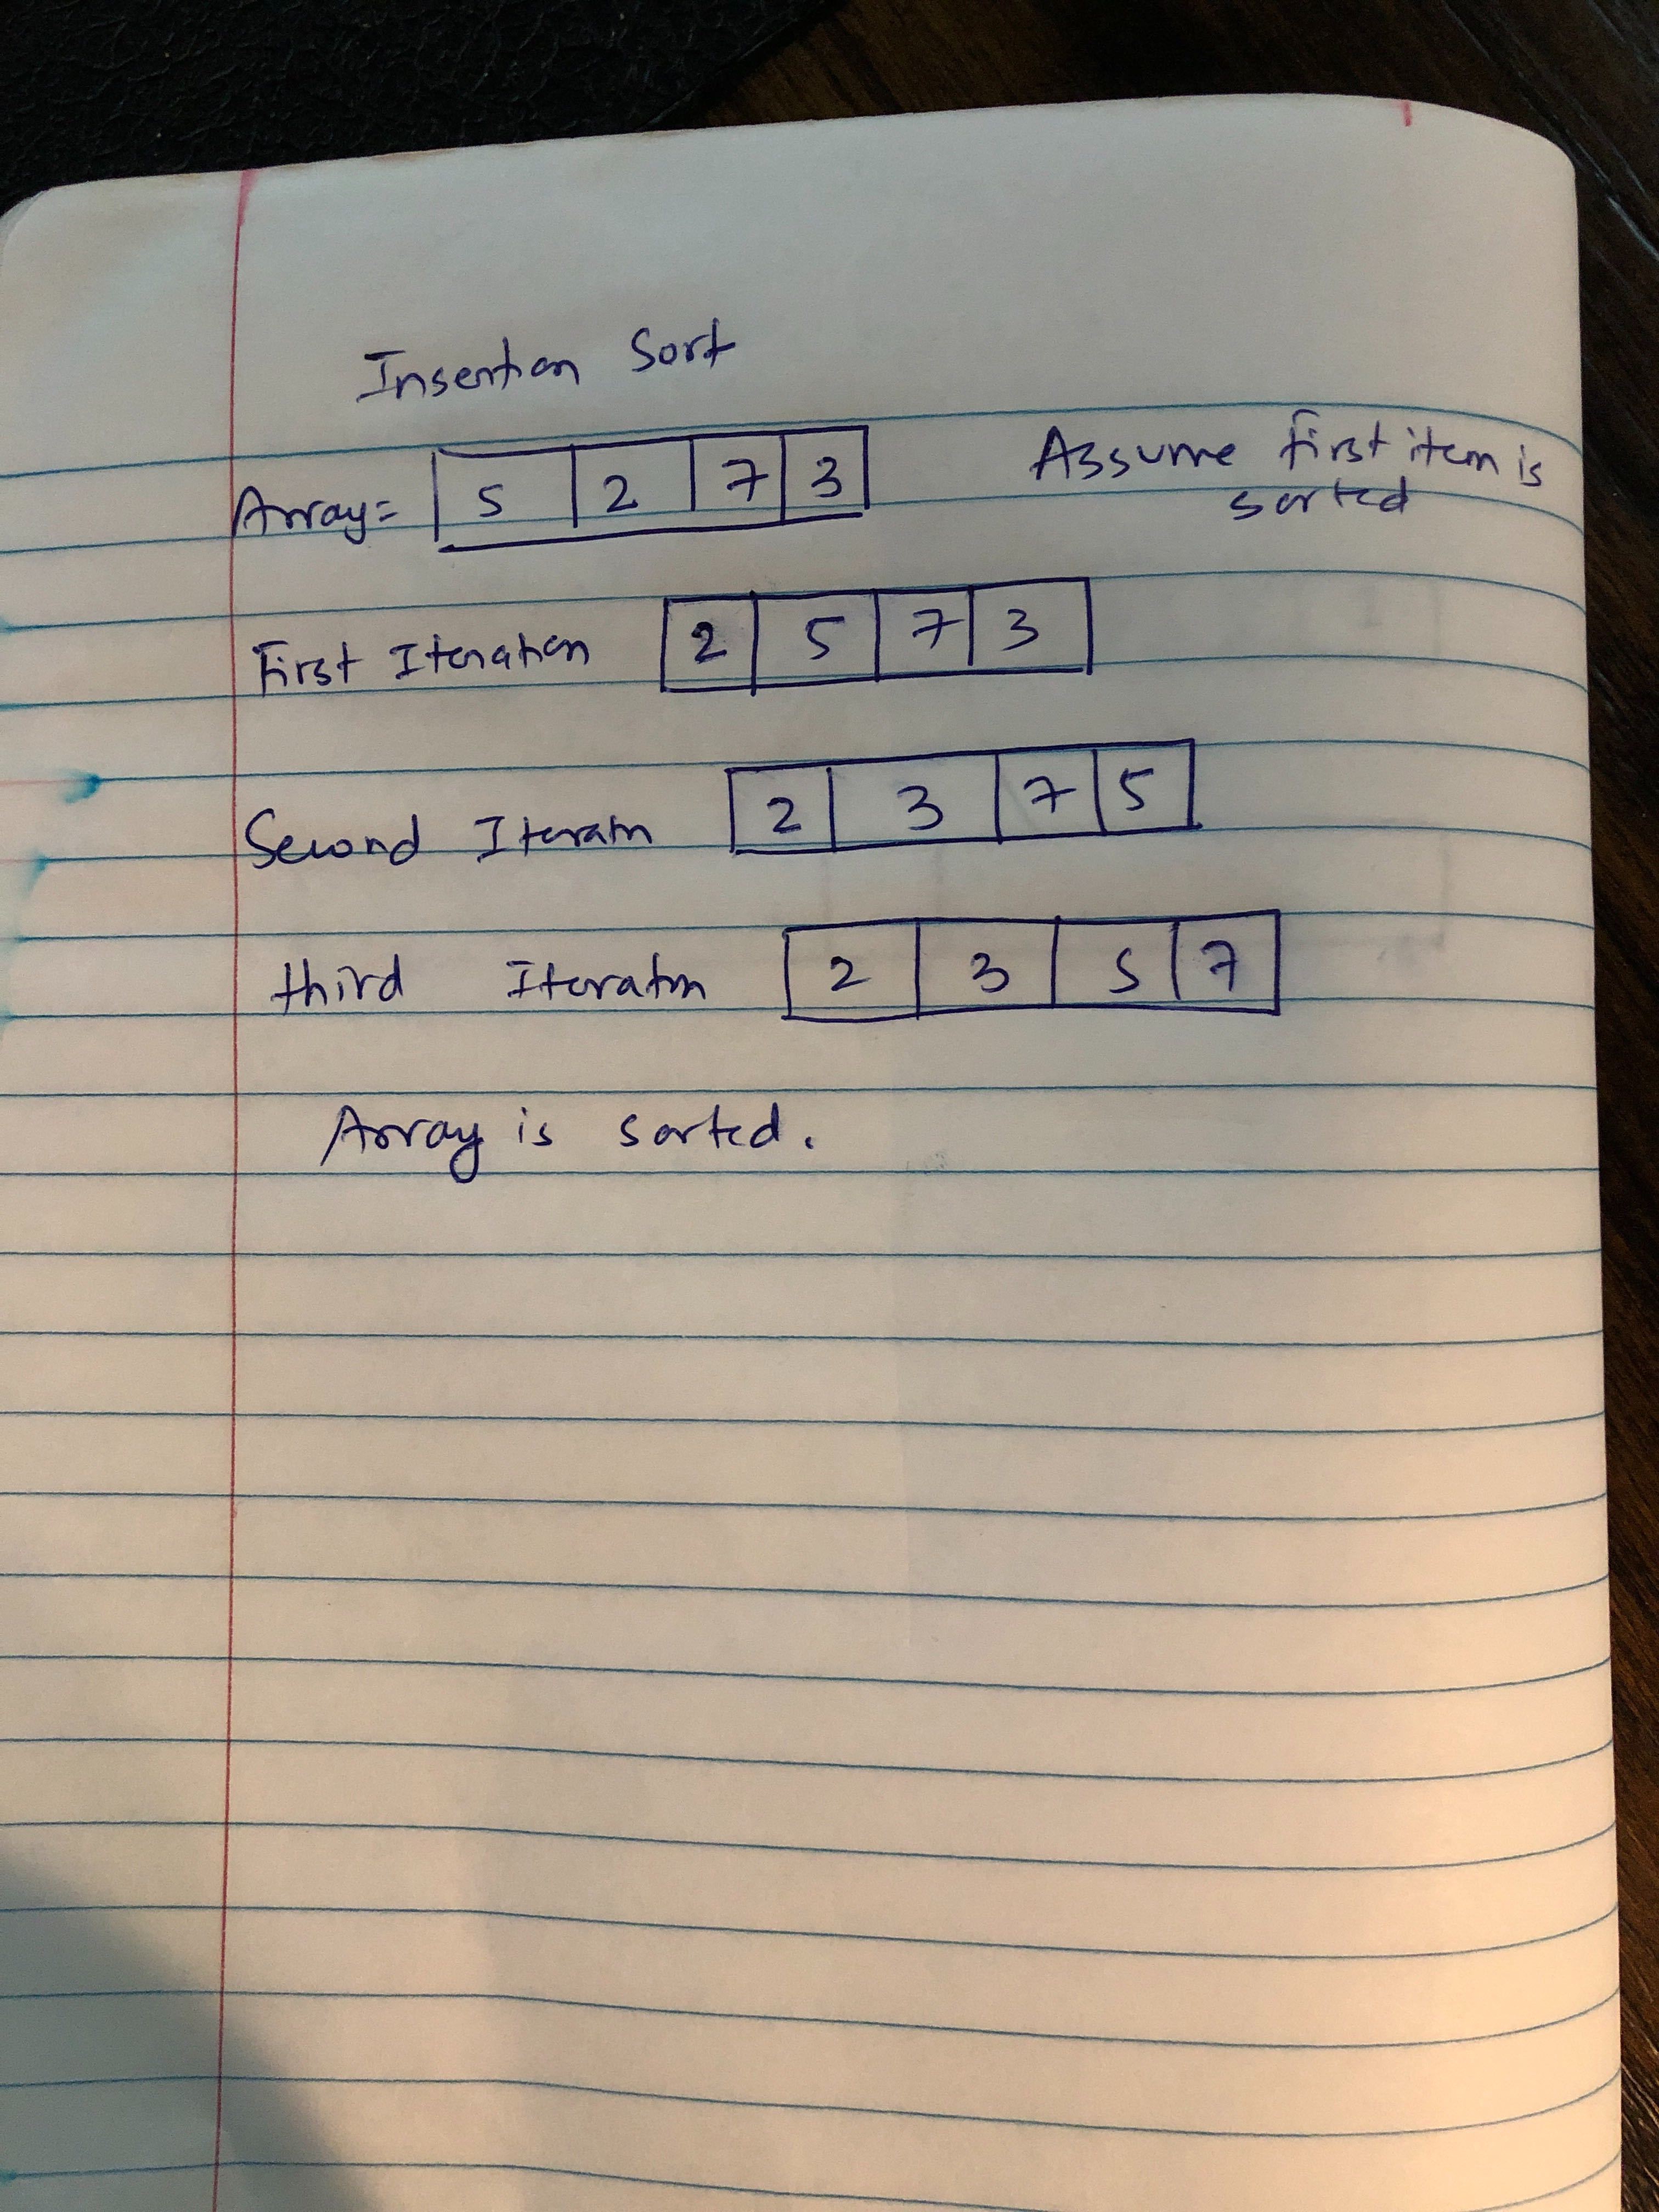 Insertion Sort
Array= 5 2 7 3
Assume first item is
sorted
First Iteration 2 5 7 3
Second Iteratn 2 3 7 5
third Iteratn 2 3 5 7
Array is sorted.